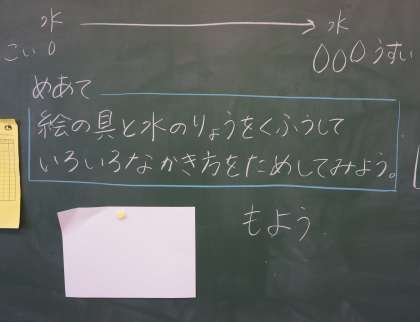 水 → 水
こい 0 000 うすい
めあて
絵の具と水のりょうをくふうして
いろいろなかき方をためしてみよう。
もよう